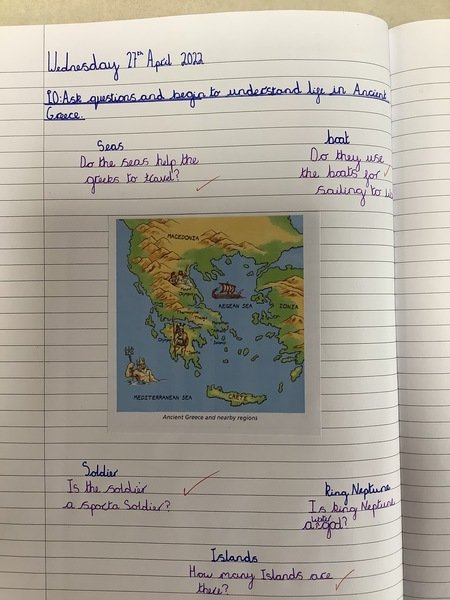 Wednesday 27th April 2022
LO: Ask questions and begin to understand life in Ancient
Greece.
Seas
Do the seas help the
greeks to travel?
boat
Do they use
the boats for
sailing to
MACEDONIA
AEGEAN SEA
IONIA
MEDITERRANEAN SEA
CRETE
Ancient Greece and nearby regions
Soldier
Is the soldier
a sparta Soldier?
king Neptune
Is king Neptune
a water god?
Islands
How many Islands are
there?